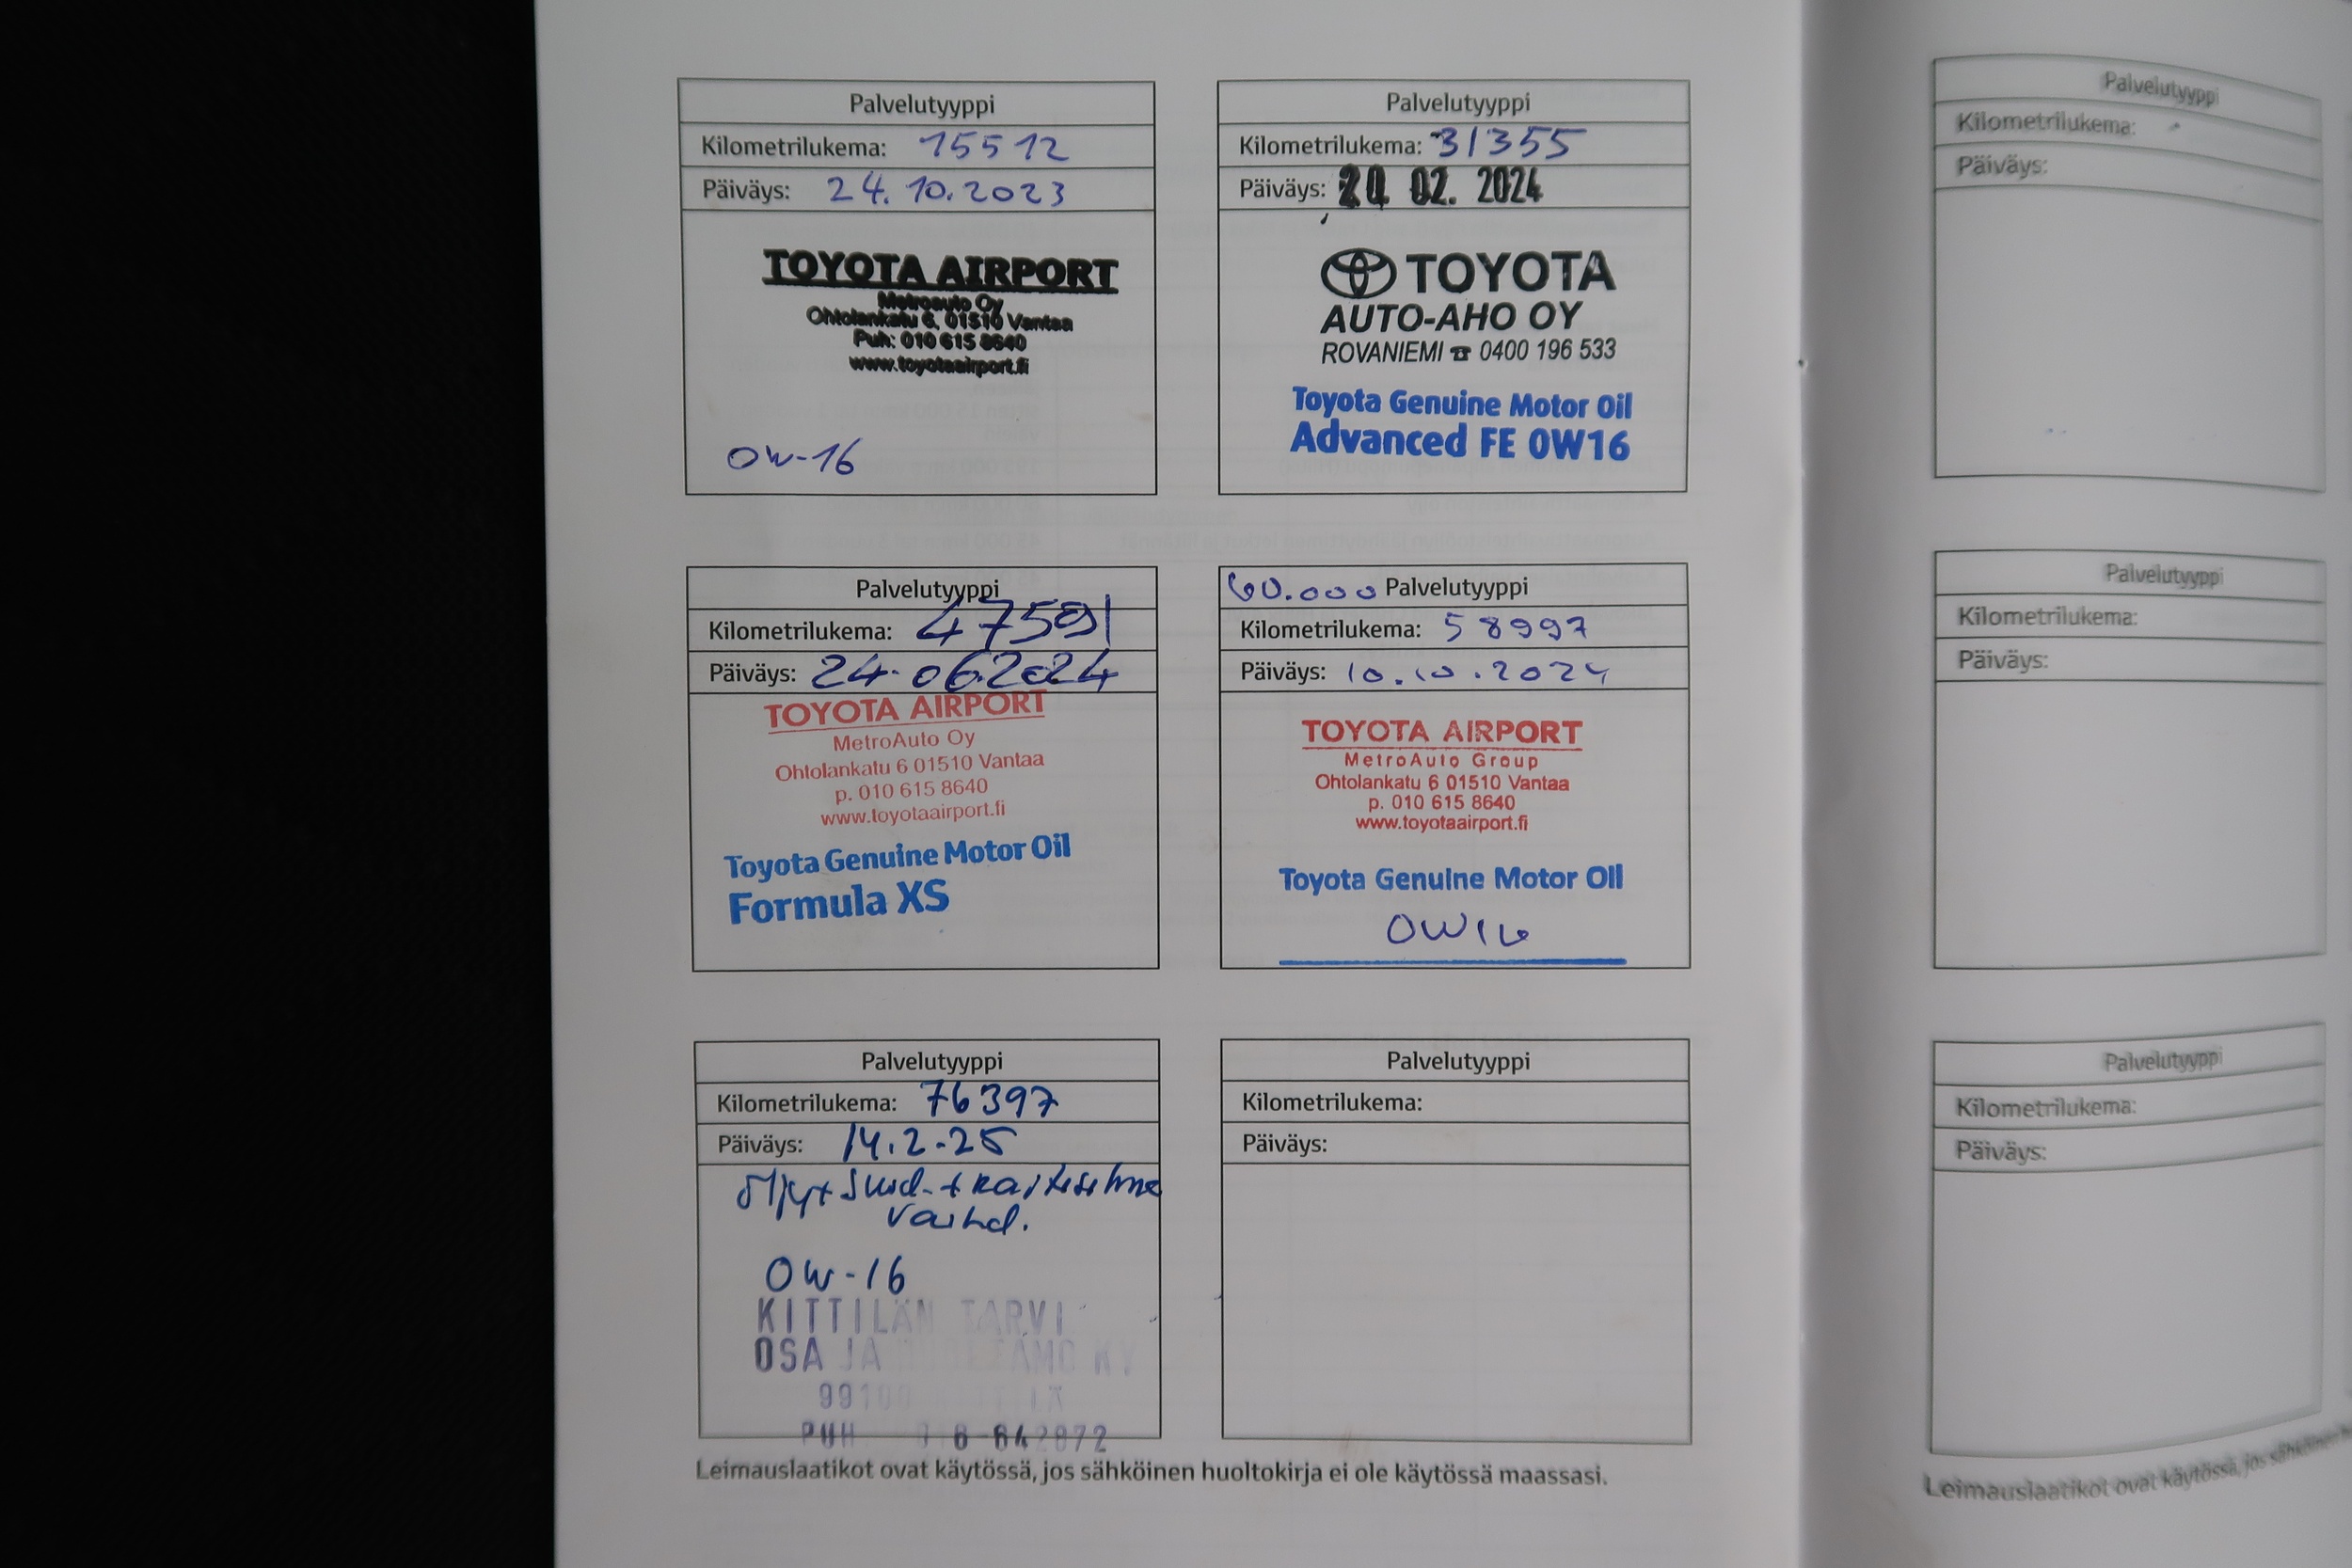 Palvelutyyppi
Kilometrilukema: 15512
Päiväys: 24.10.2023
TOYOTA AIRPORT
Metroauto Oy
Ohtolankatu 6, 01510 Vantaa
Puh: 010 615 8640
www.toyotaairport.fi
0W-16
Palvelutyyppi
Kilometrilukema: 31355
Päiväys: 02. 2024
TOYOTA
AUTO-AHO OY
ROVANIEMI ☎ 0400 196 533
Toyota Genuine Motor Oil
Advanced FE 0W16
Palvelutyyppi
Kilometrilukema: 47591
Päiväys: 24.06.2024
TOYOTA AIRPORT
MetroAuto Oy
Ohtolankatu 6 01510 Vantaa
p. 010 615 8640
www.toyotaairport.fi
Toyota Genuine Motor Oil
Formula XS
60.000 Palvelutyyppi
Kilometrilukema: 58997
Päiväys: 10.10.2024
TOYOTA AIRPORT
MetroAuto Group
Ohtolankatu 6 01510 Vantaa
p. 010 615 8640
www.toyotaairport.fi
Toyota Genuine Motor Oil
0W16
Palvelutyyppi
Kilometrilukema: 76397
Päiväys: 14.2.25
Öljy+ Suod.+
Vaihd.
0W-16
KITTILÄN TARVI
OSA JA
PUH
Palvelutyyppi
Kilometrilukema:
Päiväys:
Leimauslaatikot ovat käytössä, jos sähköinen huoltokirja ei ole käytössä maassasi.
Palvelutyyppi
Kilometrilukema:
Päiväys:
Palvelutyyppi
Kilometrilukema:
Päiväys:
Palvelutyyppi
Kilometrilukema:
Päiväys:
Leimauslaatikot ovat käytössä, jos sähköinen